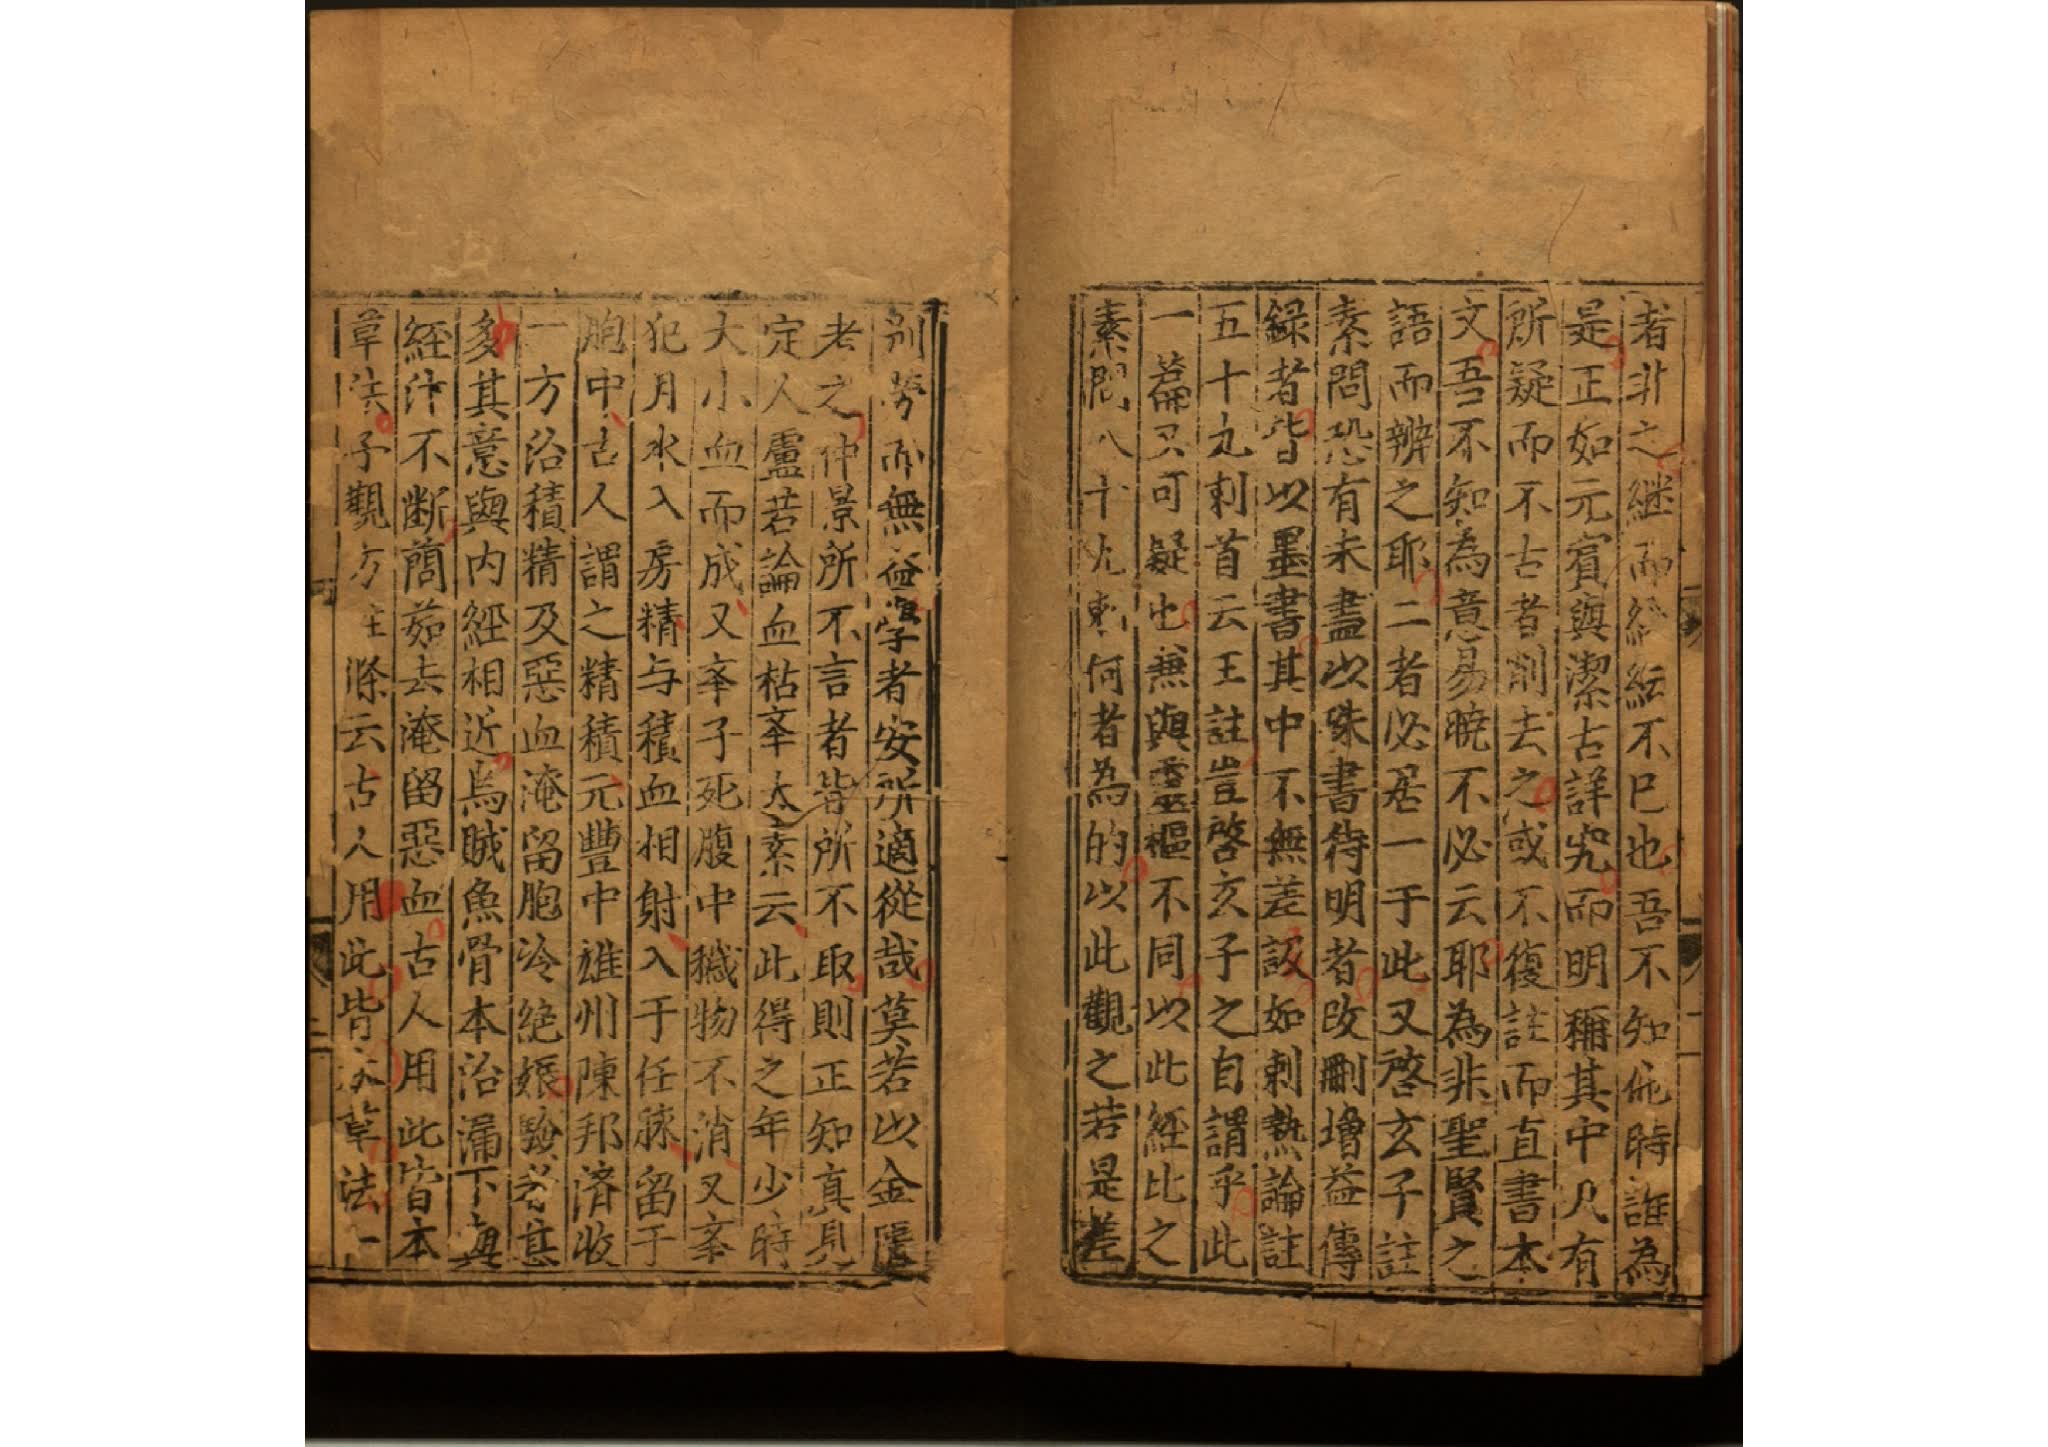 者非之継而紛紜不已也吾不知他時誰為
是正如元賔與潔古詳究而明稱其中凡有
所疑而不古者削去之或不復註而直書本
文吾不知為意易暁不必云耶為非聖賢之
語而辨之耶二者必居一于此又啓玄子註
素問恐有未盡以硃書待明者改刪增益傳
録者皆以墨書其中不無差誤如刺熱論註
五十九刺首云王註豈啓玄子之自謂乎此
一篇又可疑也兼與靈樞不同以此經比之
素問八十九刺何者為的以此觀之若是差
别勞而無益學者安所適從哉莫若以金匱
考之仲景所不言者皆所不取則正知真見
定人盧若論血枯夲太素云此得之年少時
大小血而成又夲子死腹中穢物不消又夲
犯月水入房精与積血相射入于任脉留于
胞中古人謂之精積元豐中雄州陳邦濟收
一方治積精及惡血淹留胞冷絶娠驗者甚
多其意與内經相近烏賊魚骨本治漏下與
經汁不断䕡茹去淹留惡血古人用此皆本
草法子觀方註條云古人用此皆本草法一